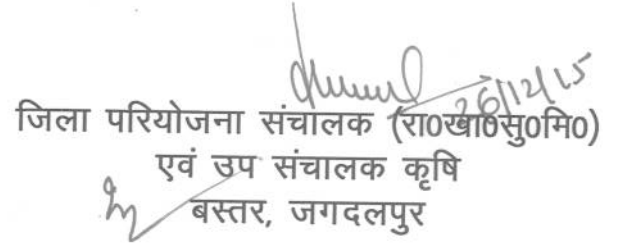 26/12/15
जिला परियोजना संचालक (रा०खा०सु०मि०)
एवं उप संचालक कृषि
बस्तर, जगदलपुर